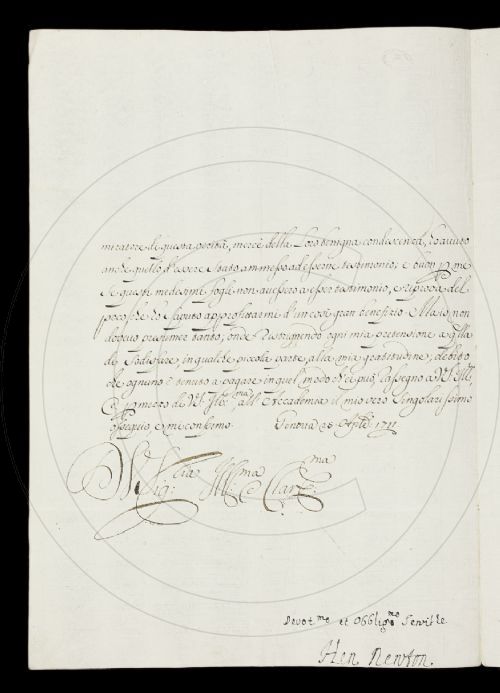 miratore di questa verità, mercè della Loro benigna condiscenza, ho avuto
anche quello d'essere stato ammesso ad esserne testimonio; e buon p me
se questi medesimi fogli non avessero a esser testimonio, e riprova del
poco che ho saputo approfittarmi d'un così gran benefizio. Ma io non
debbo presumer tanto, onde restringendo ogni mia pretensione a qlla
di sodisfare, in qualche piccola parte, alla mia gratitudine, debito
che ognuno è tenuto a pagare in quel modo ch'ei può, rassegno a VS. Ill.
e p mezzo di VS. Ill.ma all'Accademia il mio vero singolarissimo
ossequio, e mi confermo. Genova 1711
Di VSig.ria Ill.ma e Clar.ma
Devot.mo et Obblig.mo Servi.re
Hen Newton.